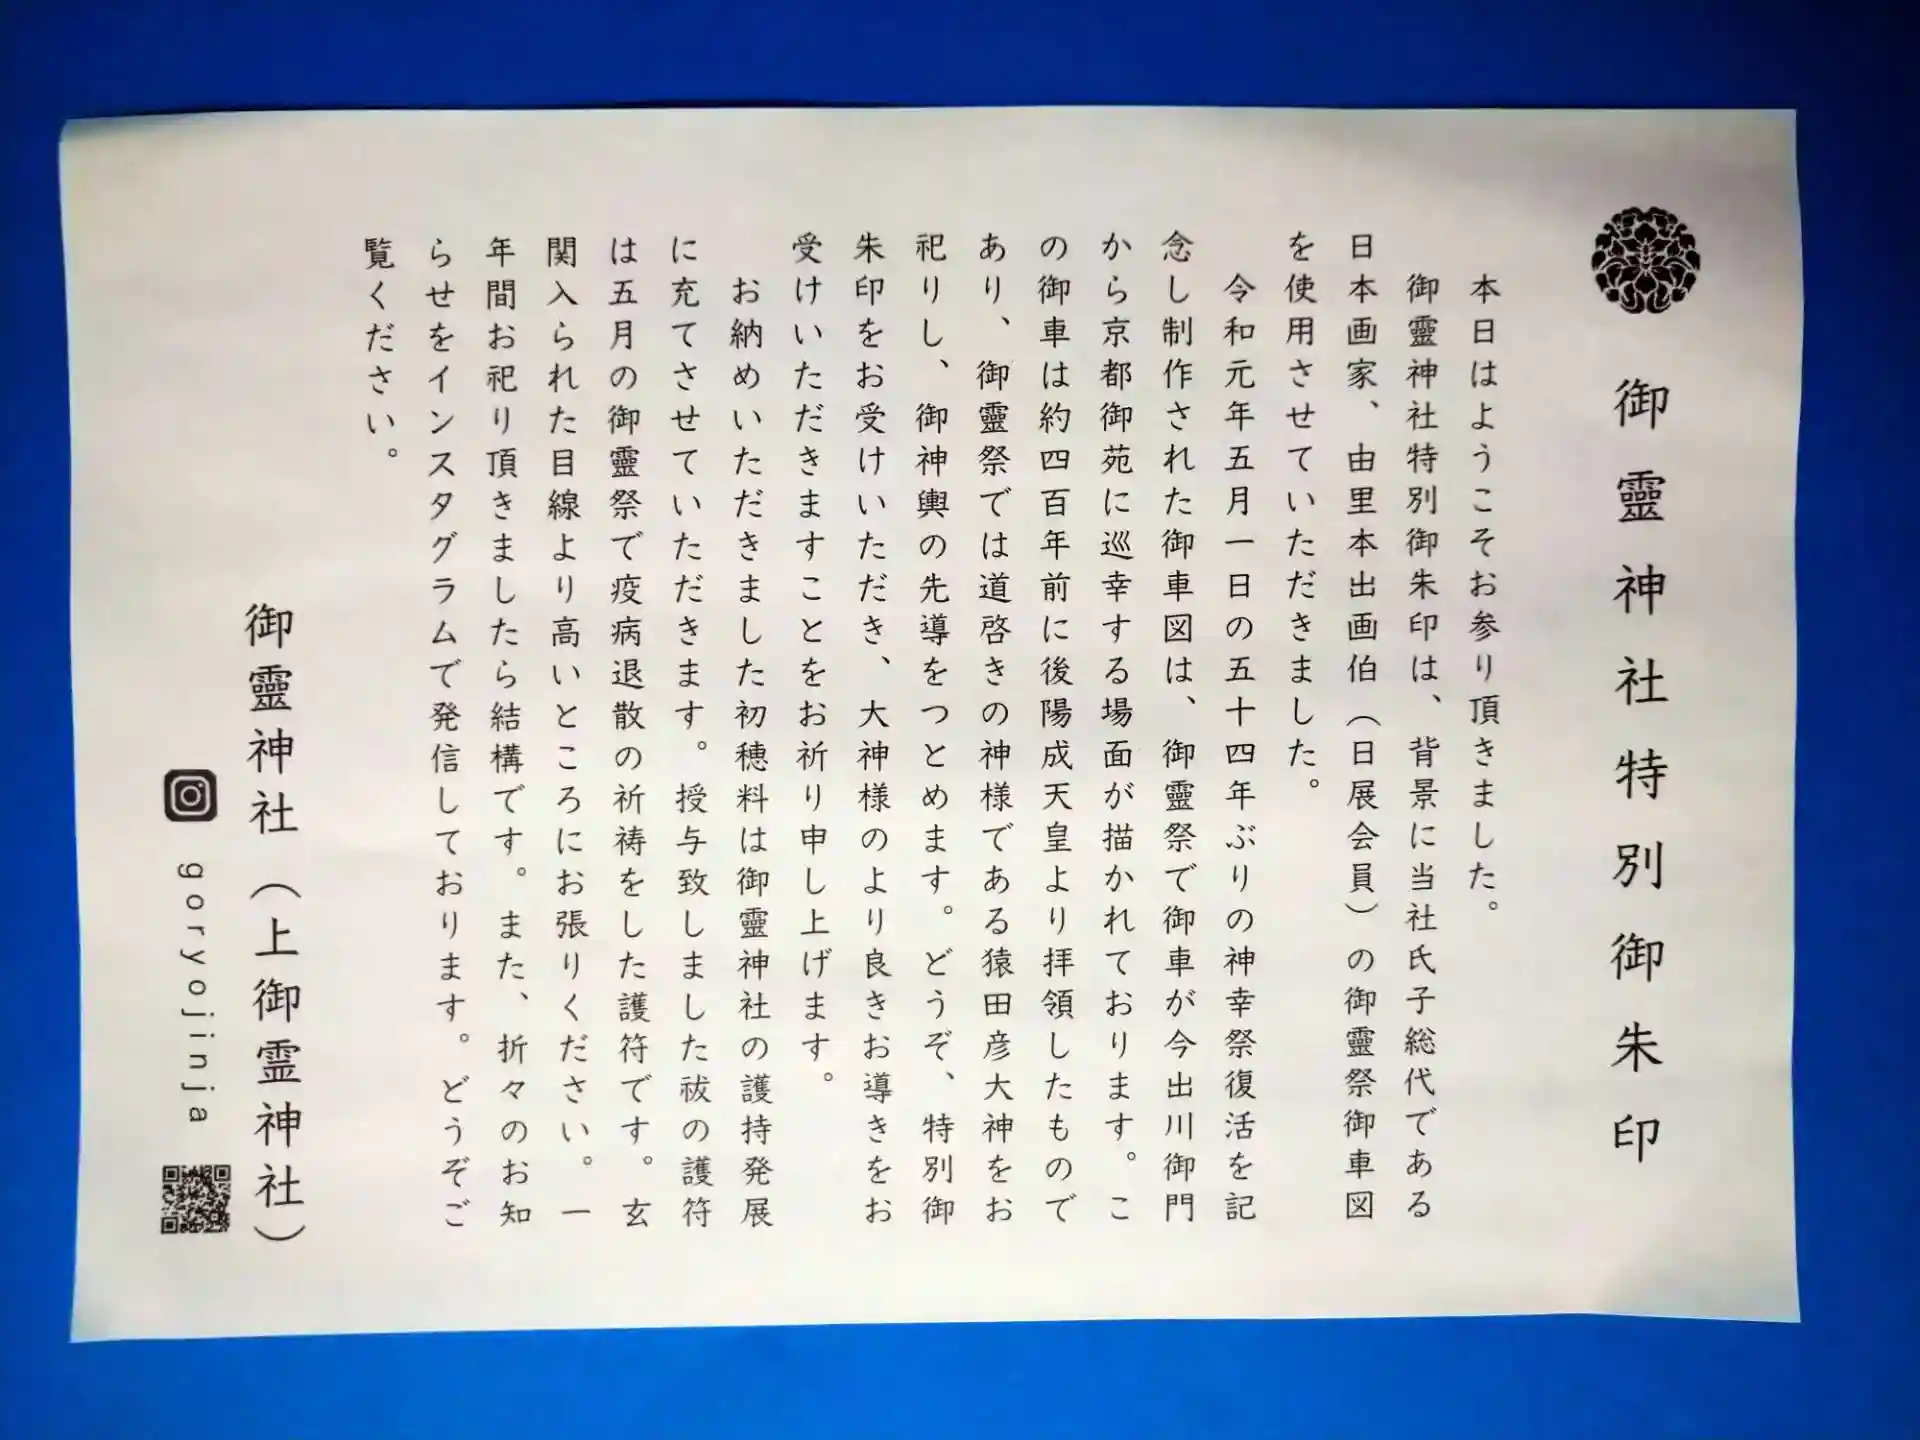 御靈神社特別御朱印
本日はようこそお参り頂きました。
御靈神社特別御朱印は、背景に当社氏子総代である
日本画家、由里本出画伯（日展会員）の御靈祭御車図
を使用させていただきました。
令和元年五月一日の五十四年ぶりの神幸祭復活を記
念し制作された御車図は、御靈祭で御車が今出川御門
から京都御苑に巡幸する場面が描かれております。こ
の御車は約四百年前に後陽成天皇より拝領したもので
あり、御靈祭では道啓きの神様である猿田彦大神をお
祀りし、御神輿の先導をつとめます。どうぞ、特別御
朱印をお受けいただき、大神様のより良きお導きをお
受けいただきますことをお祈り申し上げます。
お納めいただきました初穂料は御靈神社の護持発展
に充てさせていただきます。授与致しました祓の護符
は五月の御靈祭で疫病退散の祈祷をした護符です。玄
関入られた目線より高いところにお張りください。一
年間お祀り頂きましたら結構です。また、折々のお知
らせをインスタグラムで発信しております。どうぞご
覧ください。
御靈神社（上御霊神社）
goryojinja